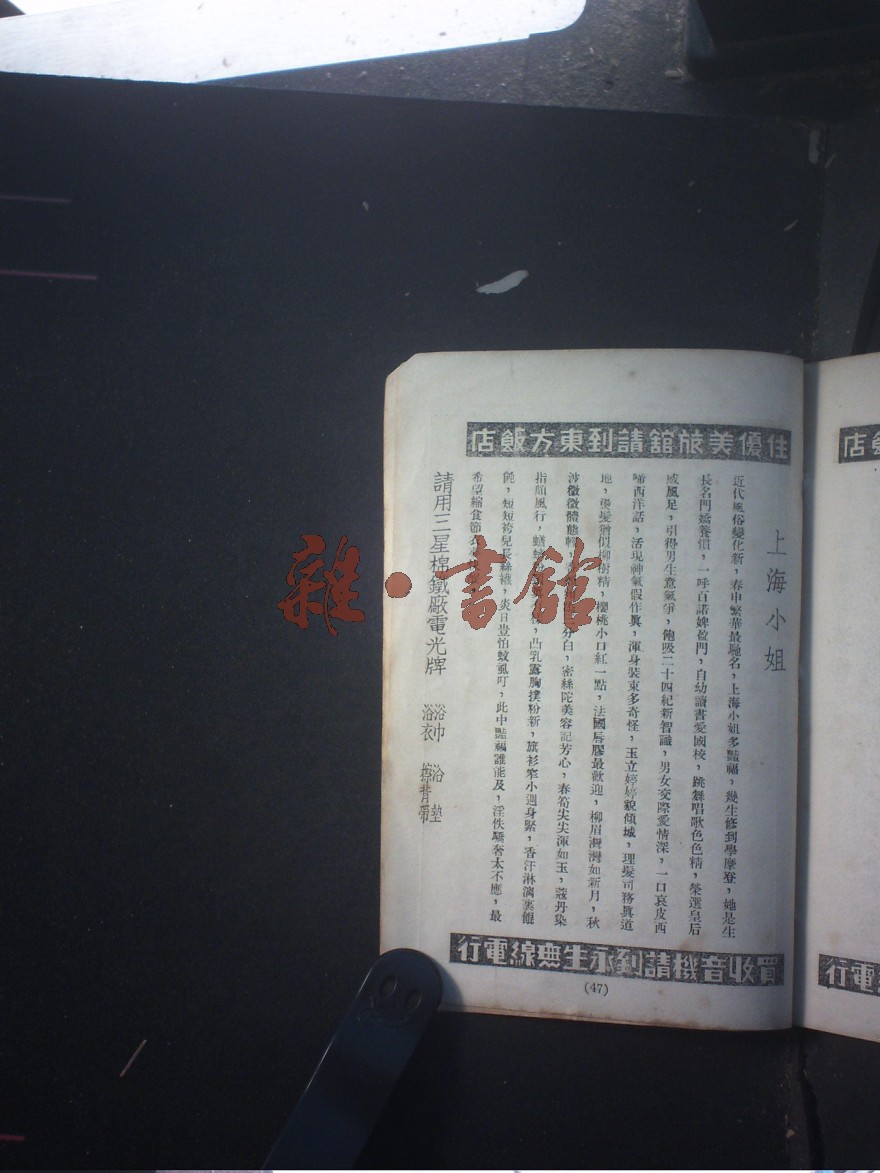 住優美旅舘請到東方飯店
上海小姐
近代風俗變化新，春申繁華最馳名，上海小姐多豔福，幾生修到學摩登，她是生
長名門嬌養慣，一呼百諾婢盈門，自幼讀書愛國校，跳舞唱歌色色精，榮選皇后
威風足，引得男生意氣爭，飽吸二十四紀新智識，男女交際愛情深，一口哀皮西
啼西洋話，活現神氣假作眞，渾身裝束多奇怪，玉立婷婷貌傾城，理髮司務眞道
地，燙髮猶似柳樹精，櫻桃小口紅一點，法國唇膠最歡迎，柳眉灣灣如新月，秋
波微微體態輕，分白，密絲陀美容記芳心，春筍尖尖渾如玉，蔻丹染
指頗風行，凸乳露胸撲粉新，旗衫窄小週身緊，香汗淋漓裹餛
飩，短短袴兒長絲襪，炎日豈怕蚊虱叮，此中豔福誰能及，淫佚驕奢太不應，最
希望縮食節衣
請用三星棉鐵廠電光牌 浴巾 浴墊 浴衣 擦背帶
買收音機請到永生無線電行
(47)
飯店
電行
雜·書館